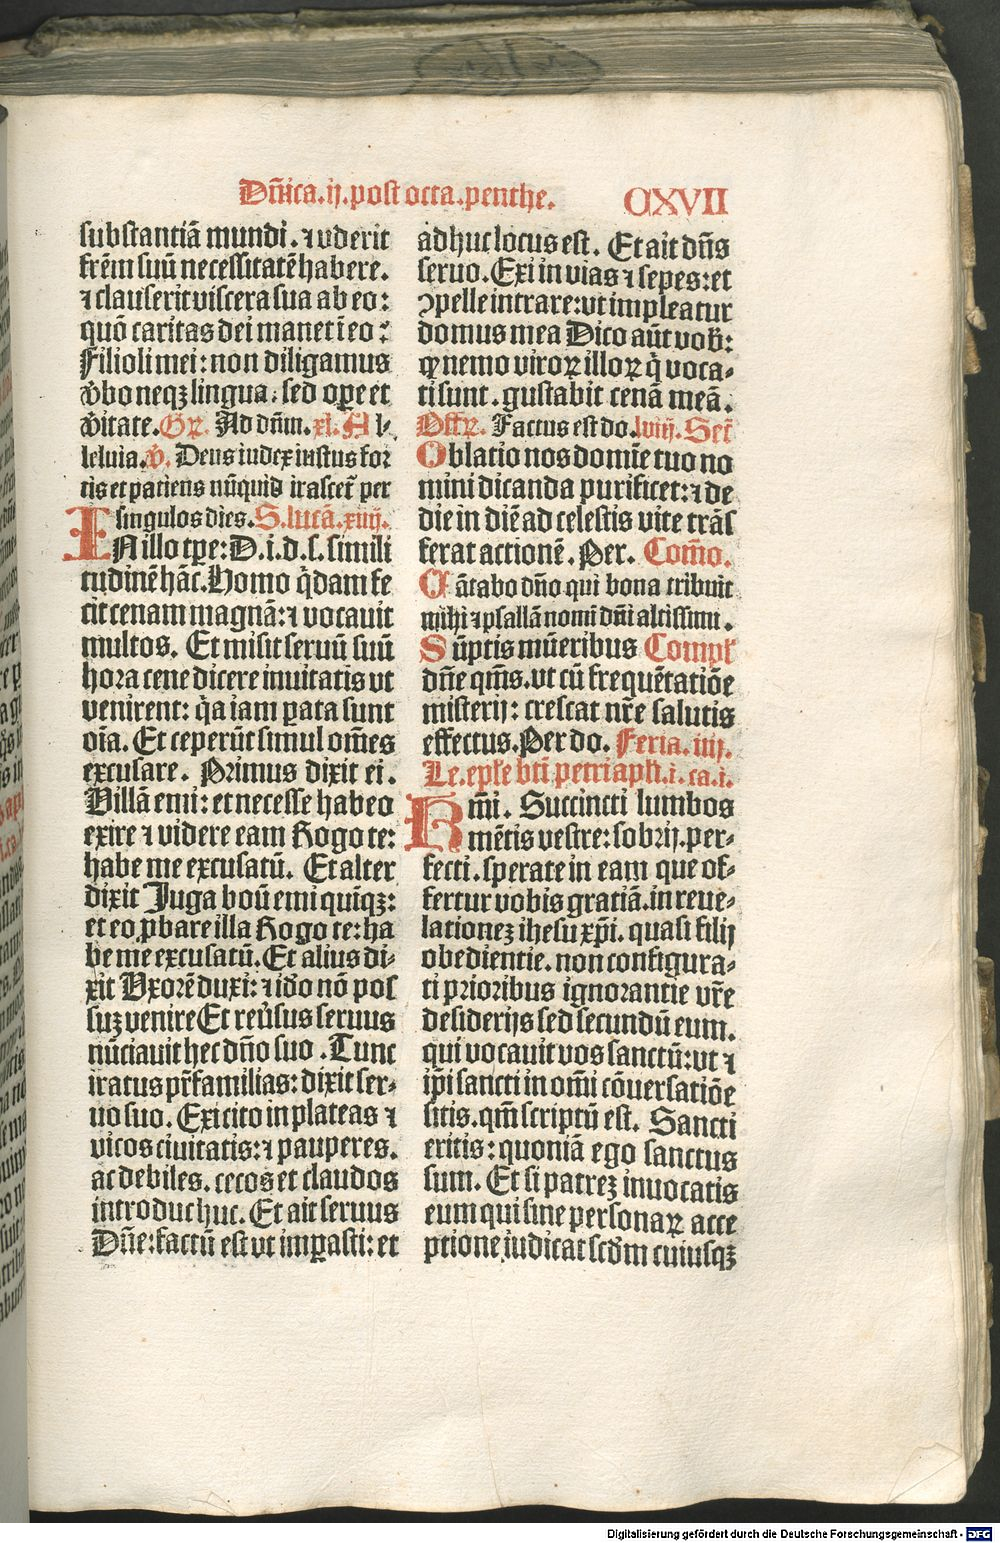 Dñica.ij.post octa.penthe. CXVII
substantiã mundi. ⁊ vderit
frẽm suũ necessitatẽ habere.
⁊ clauserit viscera sua ab eo:
quõ caritas dei manet ĩ eo:
Filioli mei: non diligamus
v̾bo neqꝫ lingua: sed oꝑe et
v̾itate. Gꝛ̃. Ad dñm. xl. A l-
leluia. v̾. Deus iudex iustus for
tis et patiens nũquid irascet̃ per
singulos dies. S. lucã. xiiij.
IN illo tꝑe: D. i. d. s. simili
tudinẽ hãc. Homo q̃dam fe
cit cenam magnã: ⁊ vocauit
multos. Et misit seruũ suũ
hora cene dicere inuitatis vt
venirent: q̃a iam ꝑata sunt
oĩa. Et ceperũt simul om̃es
excusare. Primus dixit ei.
Villã emi: et necesse habeo
exire ⁊ videre eam Rogo te:
habe me excusatũ. Et alter
dixit Juga boũ emi quĩqꝫ:
et eo ꝓbare illa Rogo te: ha
be me excusatũ. Et alius di-
xit Vxorẽ duxi: ⁊ iðo nõ pos
suꝫ venire Et reṽsus seruus
nũciauit hec dño suo. Tunc
iratus pr̃familias: dixit ser-
uo suo. Exi cito in plateas ⁊
vicos ciuitatis: ⁊ pauperes.
ac debiles. cecos et claudos
introduc huc. Et ait seruus
Dñe: factũ est vt imꝑasti: et
adhuc locus est. Et ait dñs
seruo. Exi in vias ⁊ sepes: et
ꝯpelle intrare: vt impleatur
domus mea Dico aũt vob̃:
ꝙ nemo viroꝝ illoꝝ q̃ voca-
ti sunt. gustabit cenã meã.
Offꝛ̃. Factus est do. lviij. Secr̃
Oblatio nos domĩe tuo no
mini dicanda purificet: ⁊ de
die in diẽ ad celestis vite trãs
ferat actionẽ. Per. Com̃o.
Cãtabo dño qui bona tribuit
mihi ⁊ psallã nomĩ dñi altissimi.
Sũptis mũeribus Compl̃
dñe qm̃s. vt cũ frequẽtatiõe
misterij: crescat nr̃e salutis
effectus. Per do. Feria. iiij.
Le. epl̃e bt̃i petri apl̃i. i. ca. i.
Km̃i. Succincti lumbos
mẽtis vestre: sobrij. per-
fecti. sperate in eam que of-
fertur vobis gratiã. in reue-
lationeꝫ ihesu xp̃i. quasi filij
obedientie. non configura-
ti prioribus ignorantie vr̃e
desiderijs sed secundũ eum.
qui vocauit vos sanctũ: vt ⁊
ip̃i sancti in om̃i cõuersatiõe
sitis. qm̃ scriptũ est. Sancti
eritis: quoniã ego sanctus
sum. Et si patreꝫ inuocatis
eum qui sine personaꝝ acce
ptione iudicat scðm cuiusqꝫ
Digitalisierung gefördert durch die Deutsche Forschungsgemeinschaft - DFG